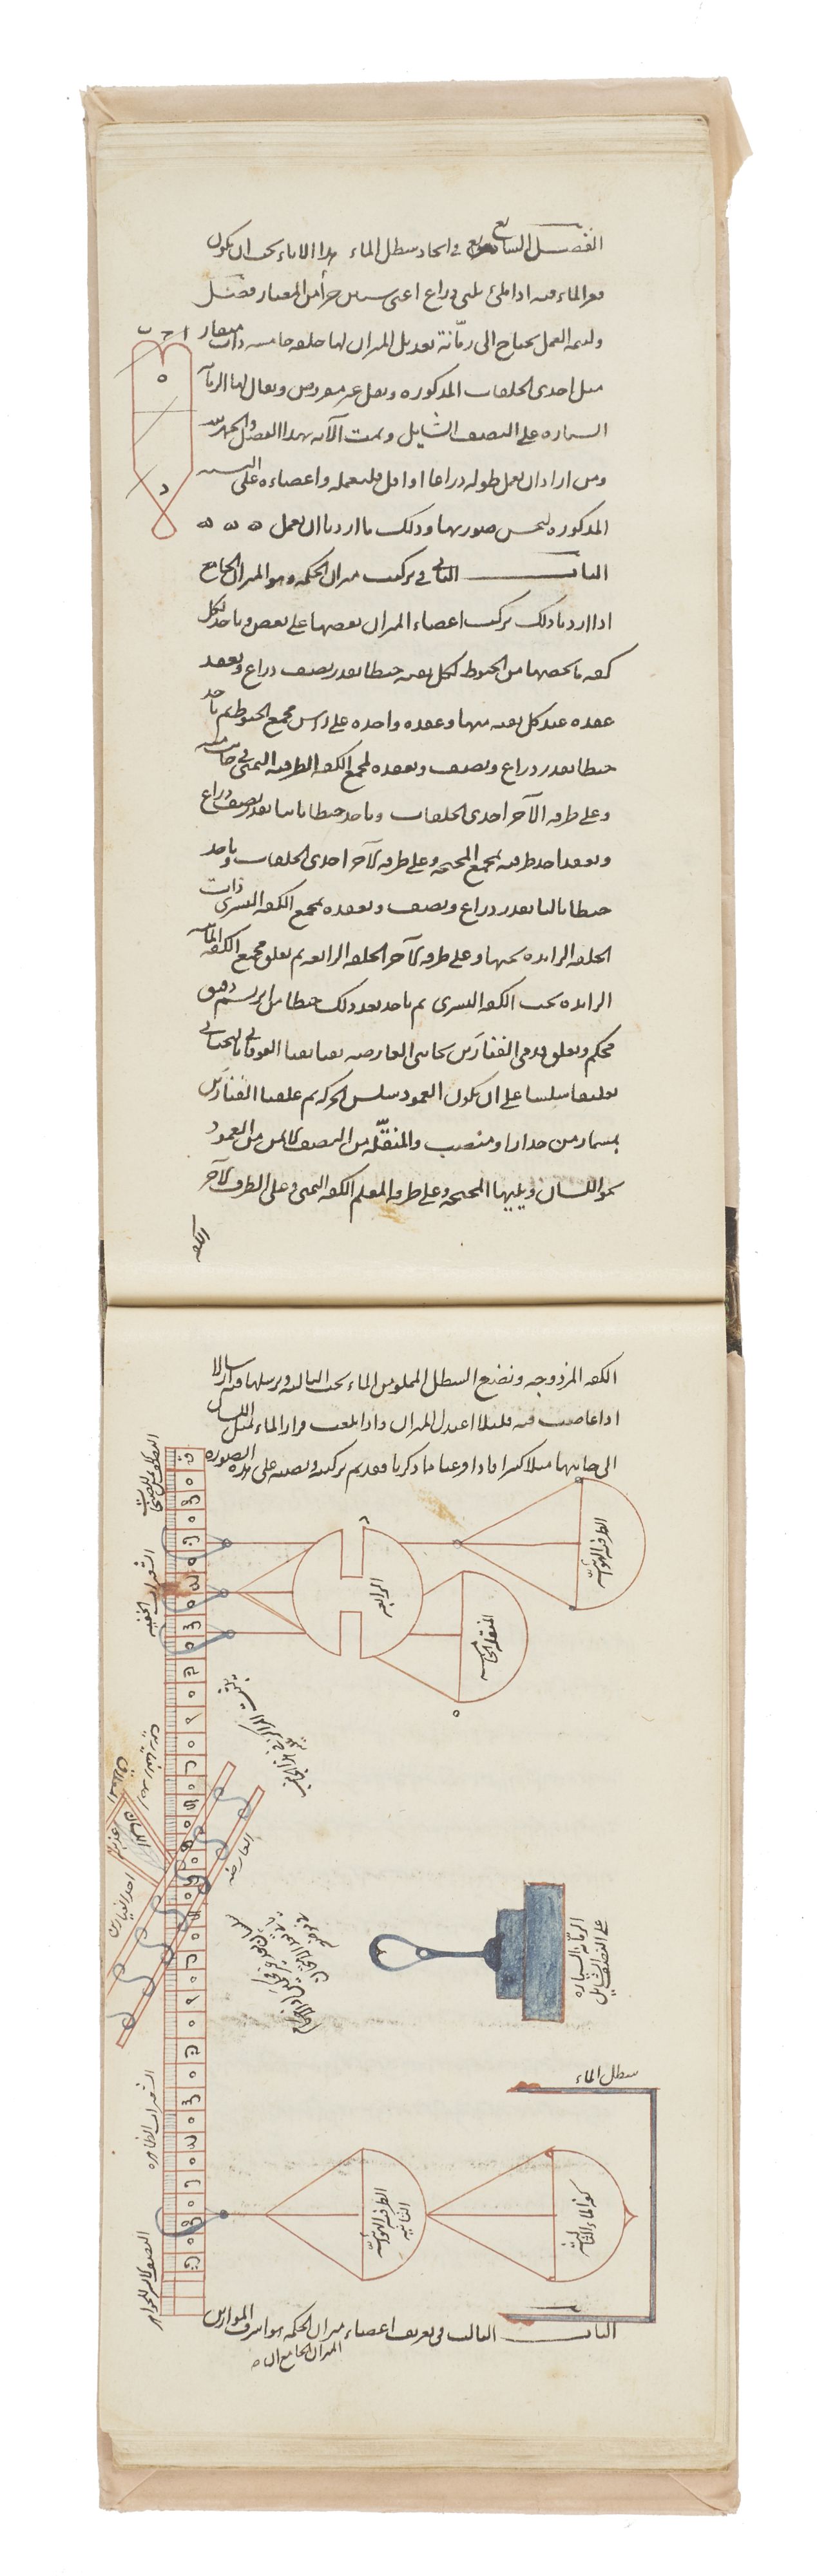 الفصل السابع في اتحاد سطل الماء هذا الاناء يجب ان يكون
الماء فيه اذا ملئ ثلثي ذراع اعني ستين جزءا من المعيار فصل
ولتمة العمل يحتاج الى رمّانة تعديل الميزان لها حلقة خامسة ذات منقار
مثل احدى الحلقات المذكورة وثقل غير مفروض ويقال لها الرمانة
السيارة على النصف الشايل وتمت الآلة بهذا الفصل والحمد لله
ومن اراد ان يعمل طوله ذراعا او اقل فليعمله واعضاءه على النسب
المذكورة لتحسن صورتها وذلك ما اردنا ان نعمل ه ه ه
الباب الثاني في تركيب ميزان الحكمة وهو الميزان الجامع
اذا اردنا ذلك تركيب اعضاء الميزان بعضها على بعض وناخذ لكل
كفة ما يخصها من الخيوط لكل ثقبة خيطا بقدر نصف ذراع ونعقد
عقدة عند كل ثقبة منها وعقدة واحدة على راس مجمع الخيوط ثم ناخذ
خيطا بقدر ذراع ونصف ونعقده بمجمع الكفة الطرفية اليمنى
وعلى طرفه الآخر احدى الحلقات وناخذ خيطا ثانيا بقدر نصف ذراع
ونعقد احد طرفيه بمجمع المجنحة وعلى طرفه الآخر احدى الحلقات وناخذ
خيطا ثالثا بقدر ذراع ونصف ونعقده بمجمع الكفة اليسرى ذات
الحلقة الزايدة تحتها وعلى طرفه الآخر الحلقة الرابعة ثم نعلق مجمع الكفة المائية
الزايدة تحت الكفة اليسرى ثم ناخذ بعد ذلك خيطا من ابريسم دقيق
محكم ونعلق قدمي الفيارين بجانبي العارضة ثقبا ثقبا الفوقاني بالتحتاني
تعليقا سلسا على ان يكون العمود سلس الحركة ثم علقنا الفيارين
بمسمار من جدار او منصب والمنقّلة من النصف الايمن من العمود
نحو اللسان ويليها المجنحة وعلى طرفه المعلم الكفة اليمنى وعلى الطرف الآخر
الكفة
الكفة المزدوجة ونضع السطل المملو من الماء تحت الثالثة ونرسلها فيه ارسالا
اذا غاصت فيه قليلا اعتدل الميزان واذا بلغت قرار الماء تميل اللسان
الى جانبها ميلا كثيرا فاذا فرغنا مما ذكرنا فقد تم تركيبه ونصبه على هذه الصورة
الطرفية الهوائية
المنقلة الخامسة
الرابعة
النصف الايمن للصنجات
الشعيرات الخفية
اللسان
العارضة
احد الفيارين
الرمّانة السيارة
على النصف الشايل
سطل الماء
الطرفية الهوائية
الثانية
كفة الماء الثالثة
الشعيرات الظاهرة
النصف الايسر للجواهر
الباب الثالث في تعريف اعضاء ميزان الحكمة هو اشرف الموازين
الميزان الجامع